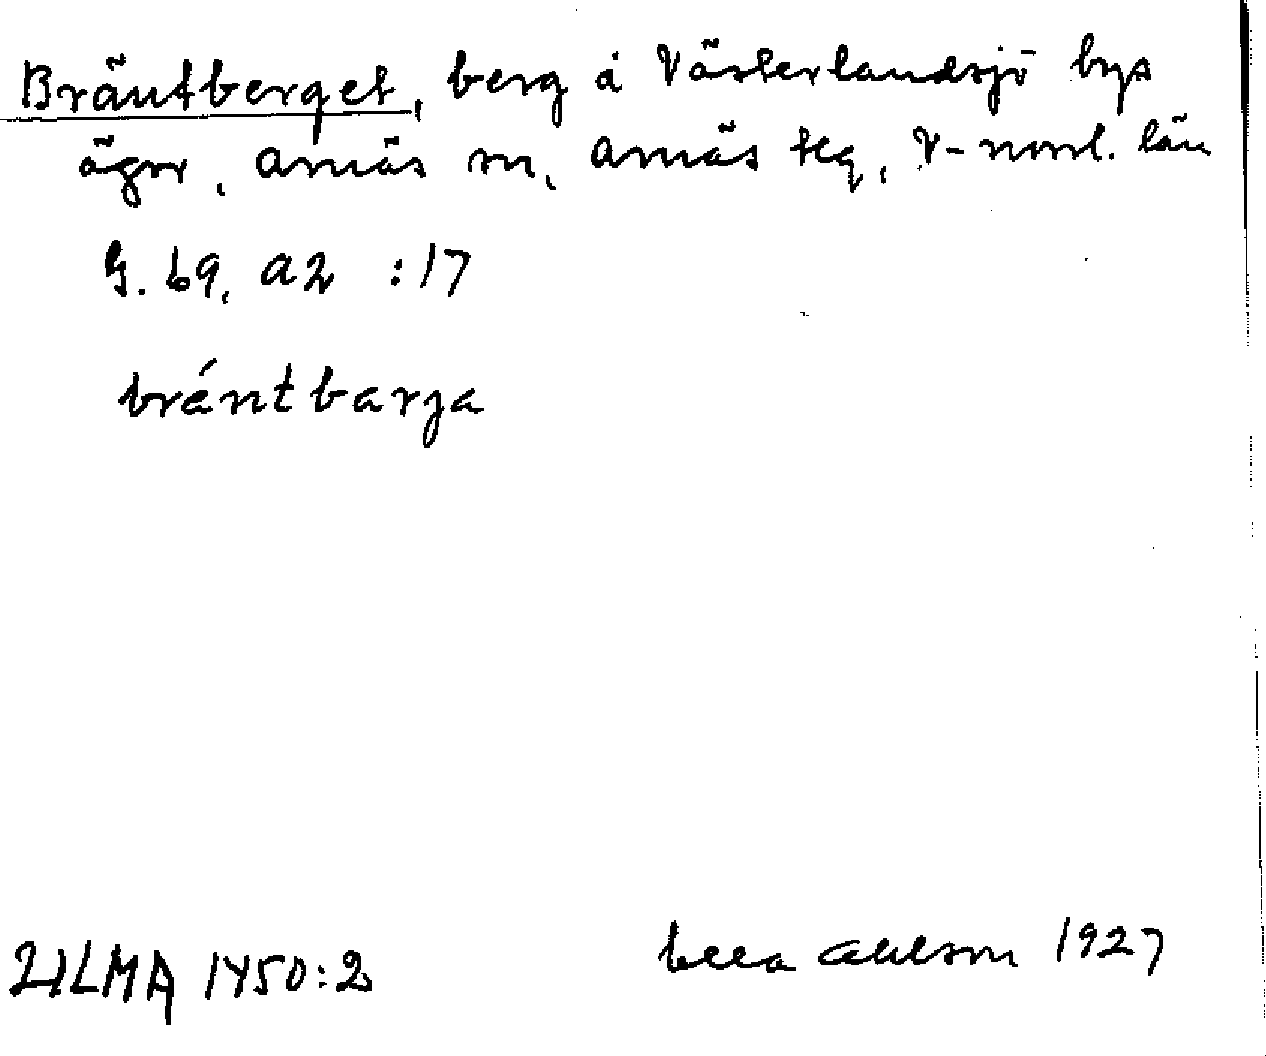 Bräntberget, berg å Västerlandsjö bys
ägor, Arnäs sn, Arnäs tlg, V-norrl. län
G. 69, a2 :17
bräntbarja
ULMA 1450:2
Bella Ahlson 1927